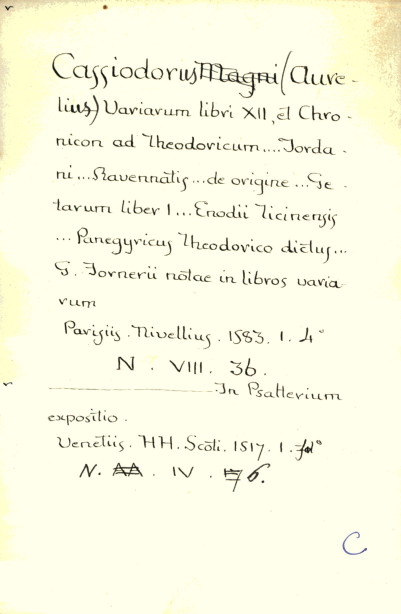 Cassiodorus Magni (Aure-
lius) Variarum libri XII, et Chro-
nicon ad Theodoricum.... Jorda-
ni... Ravennatis... de origine... Ge-
tarum liber I... Enodii Ticinensis
... Panegyricus Theodorico dictus...
G. Fornerii notae in libros varia-
rum
Parisiis. Nivellius. 1583. 1. 4°
N. VIII. 36.
In Psalterium
expositio.
Venetiis. HH. Scoti. 1517. 1. fol°
N. AA. IV. 6.
C